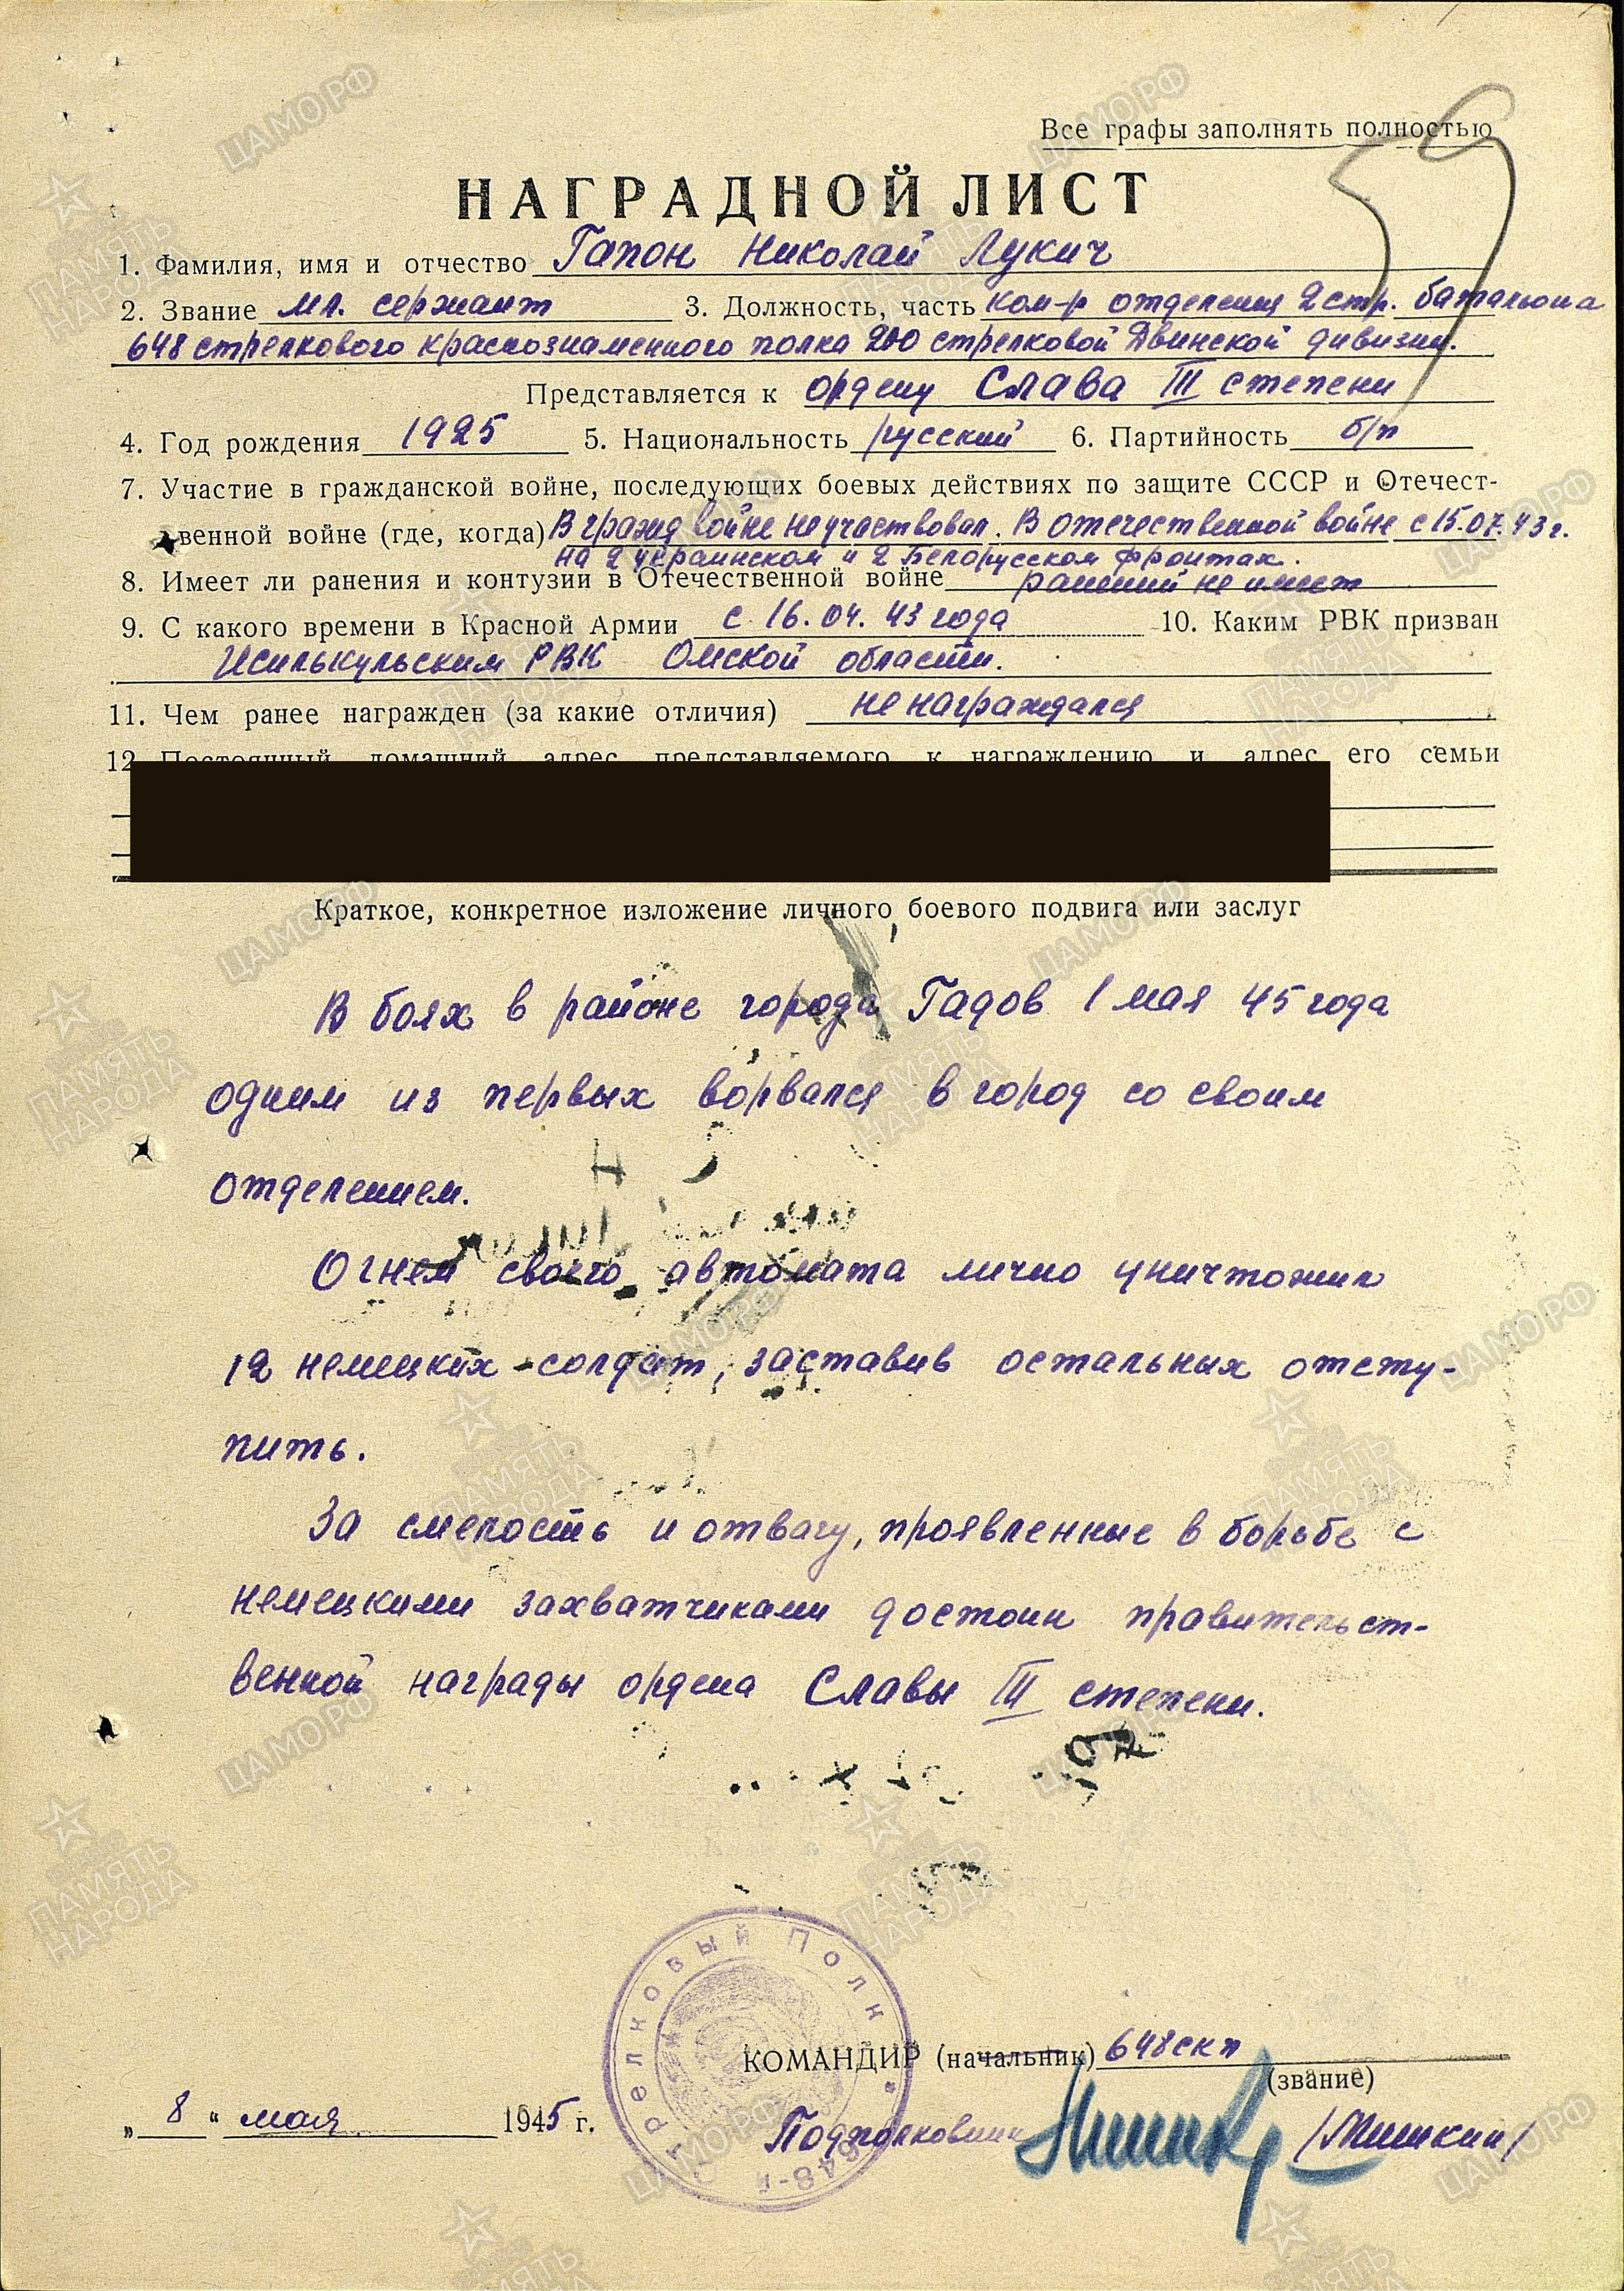 Все графы заполнять полностью
59
НАГРАДНОЙ ЛИСТ
1. Фамилия, имя и отчество Гапон Николай Лукич
2. Звание мл. сержант 3. Должность, часть ком-р отделения 2 стр. батальона
648 стрелкового краснознаменного полка 200 стрелковой Двинской дивизии.
Представляется к ордену Слава III степени
4. Год рождения 1925 5. Национальность русский 6. Партийность б/п
7. Участие в гражданской войне, последующих боевых действиях по защите СССР и Отечест-
венной войне (где, когда) В гражд войне не участвовал. В отечественной войне с 15.07.43 г.
на 2 Украинском и 2 Белорусском фронтах.
8. Имеет ли ранения и контузии в Отечественной войне ранений не имеет
9. С какого времени в Красной Армии с 16.04.43 года 10. Каким РВК призван
Исилькульским РВК Омской области.
11. Чем ранее награжден (за какие отличия) не награждался
12 Постоянный домашний адрес представляемого к награждению и адрес его семьи
Краткое, конкретное изложение личного боевого подвига или заслуг
В боях в районе города Гадов 1 мая 45 года
одним из первых ворвался в город со своим
отделением.
Огнем своего автомата лично уничтожил
12 немецких солдат, заставив остальных отсту-
пить.
За смелость и отвагу, проявленные в борьбе с
немецкими захватчиками достоин правительст-
венной награды ордена Славы III степени.
КОМАНДИР (начальник) 648 скп
(звание)
„8“ мая 1945 г.
Подполковник /Мишкин/
648-й Стрелковый Полк
ЦАМО.РФ
ПАМЯТЬ НАРОДА